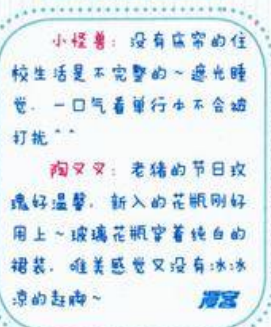 小怪兽：没有床帘的住
校生活是不完整的～遮光睡
觉，一口气看单行本不会被
打扰^^
陶叉叉：老猪的节日玫
瑰好温馨，新入的花瓶刚好
用上～玻璃花瓶穿着纯白的
裙装，唯美感觉又没有冰冰
凉的赶脚～
漫客